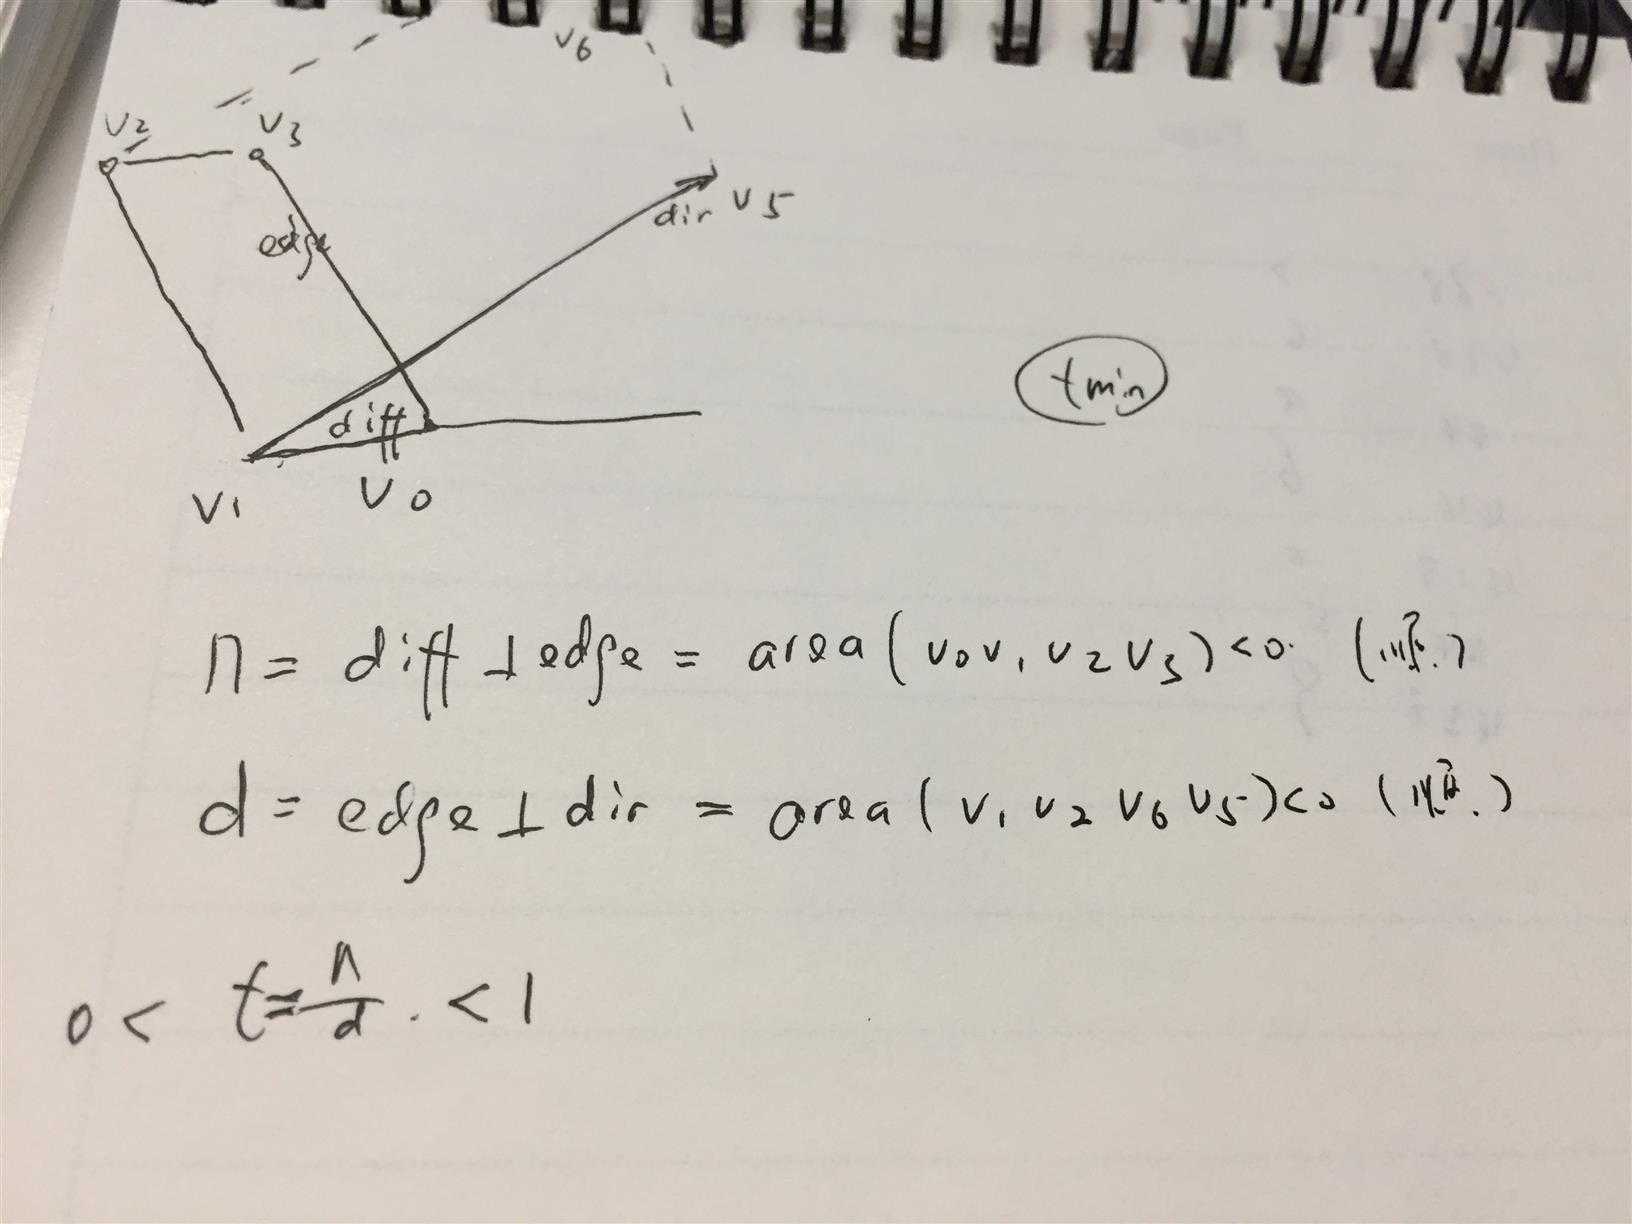 v6
v2
v3
edge
dir v5
tmin
diff
v1
v0
n = diff ⊥ edge = area (v0 v1 v2 v3) < 0. (順.)
d = edge ⊥ dir = area ( v1 v2 v6 v5 ) < 0 (順.)
0 < t = n/d . < 1